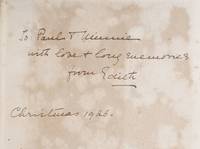 To Paul & Minnie
with love & long memories
from Edith
Christmas 1926.